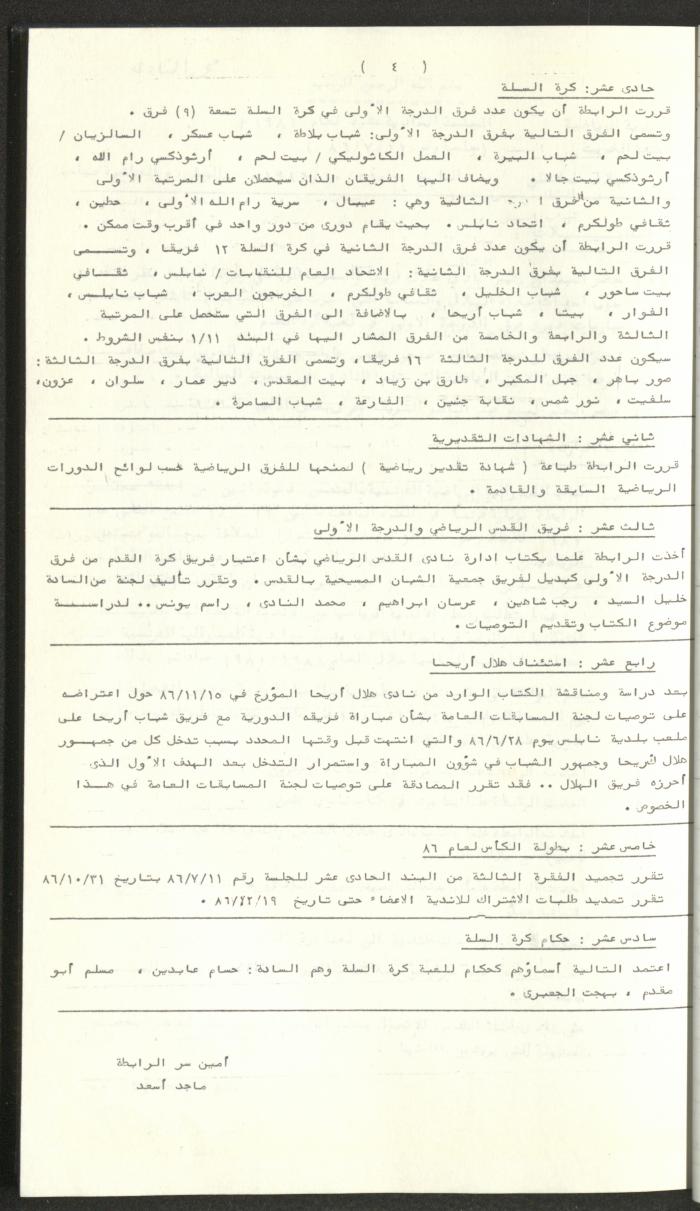 ( ٤ )
حادى عشر: كرة السلة
قررت الرابطة أن يكون عدد فرق الدرجة الأولى في كرة السلة تسعة (٩) فرق .
وتسمى الفرق التالية بفرق الدرجة الأولى: شباب بلاطة ، شباب عسكر ، السالزيان /
بيت لحم ، شباب البيرة ، العمل الكاثوليكي / بيت لحم ، أرثوذكسي رام الله ،
أرثوذكسي بيت جالا . ويضاف اليها الفريقان الذان سيحصلان على المرتبة الأولى
والثانية من فرق الثانية وهي : عيبال ، سرية رام الله الأولى ، حطين ،
ثقافي طولكرم ، اتحاد نابلس . بحيث يقام دورى من دور واحد في أقرب وقت ممكن .
قررت الرابطة أن يكون عدد فرق الدرجة الثانية في كرة السلة ١٢ فريقا ، وتسمى
الفرق التالية بفرق الدرجة الثانية : الاتحاد العام للنقابات / نابلس ، ثقافي
بيت ساحور ، شباب الخليل ، ثقافي طولكرم ، الخريجون العرب ، شباب نابلس ،
الفوار ، بيتا ، شباب أريحا ، بالاضافة الى الفرق التي ستحصل على المرتبة
الثالثة والرابعة والخامسة من الفرق المشار اليها في البند ١/١١ بنفس الشروط .
سيكون عدد الفرق للدرجة الثالثة ١٦ فريقا، وتسمى الفرق التالية بفرق الدرجة الثالثة :
صور باهر ، جبل المكبر ، طارق بن زياد ، بيت المقدس ، دير عمار ، سلوان ، عزون،
سلفيت ، نور شمس ، نقابة جنين ، الفارعة ، شباب السامرة .
ثاني عشر : الشهادات التقديرية
قررت الرابطة طباعة ( شهادة تقدير رياضية ) لمنحها للفرق الرياضية حسب لوائح الدورات
الرياضية السابقة والقادمة .
ثالث عشر : فريق القدس الرياضي والدرجة الأولى
أخذت الرابطة علما بكتاب ادارة نادى القدس الرياضي بشأن اعتبار فريق كرة القدم من فرق
الدرجة الأولى كبديل لفريق جمعية الشبان المسيحية بالقدس . وتقرر تأليف لجنة من السادة
خليل السيد ، رجب شاهين ، عرسان ابراهيم ، محمد النادى ، راسم يونس .. لدراسة
موضوع الكتاب وتقديم التوصيات .
رابع عشر : استئناف هلال أريحا
بعد دراسة ومناقشة الكتاب الوارد من نادى هلال أريحا المؤرخ في ٨٦/١١/١٥ حول اعتراضه
على توصيات لجنة المسابقات العامة بشأن مباراة فريقه الدورية مع فريق شباب أريحا على
ملعب بلدية نابلس يوم ٨٦/٦/٢٨ والتي انتهت قبل وقتها المحدد بسبب تدخل كل من جمهور
هلال أريحا وجمهور الشباب في شؤون المباراة واستمرار التدخل بعد الهدف الأول الذى
أحرزه فريق الهلال .. فقد تقرر المصادقة على توصيات لجنة المسابقات العامة في هذا
الخصوص .
خامس عشر : بطولة الكأس لعام ٨٦
تقرر تجميد الفقرة الثالثة من البند الحادى عشر للجلسة رقم ٨٦/٧/١١ بتاريخ ٨٦/١٠/٣١
تقرر تمديد طلبات الاشتراك للاندية الاعضاء حتى تاريخ .
سادس عشر : حكام كرة السلة
اعتمد التالية أسماؤهم كحكام للعبة كرة السلة وهم السادة : حسام عابدين ، مسلم أبو
مقدم ، بهجت الجعبرى .
أمين سر الرابطة
ماجد أسعد